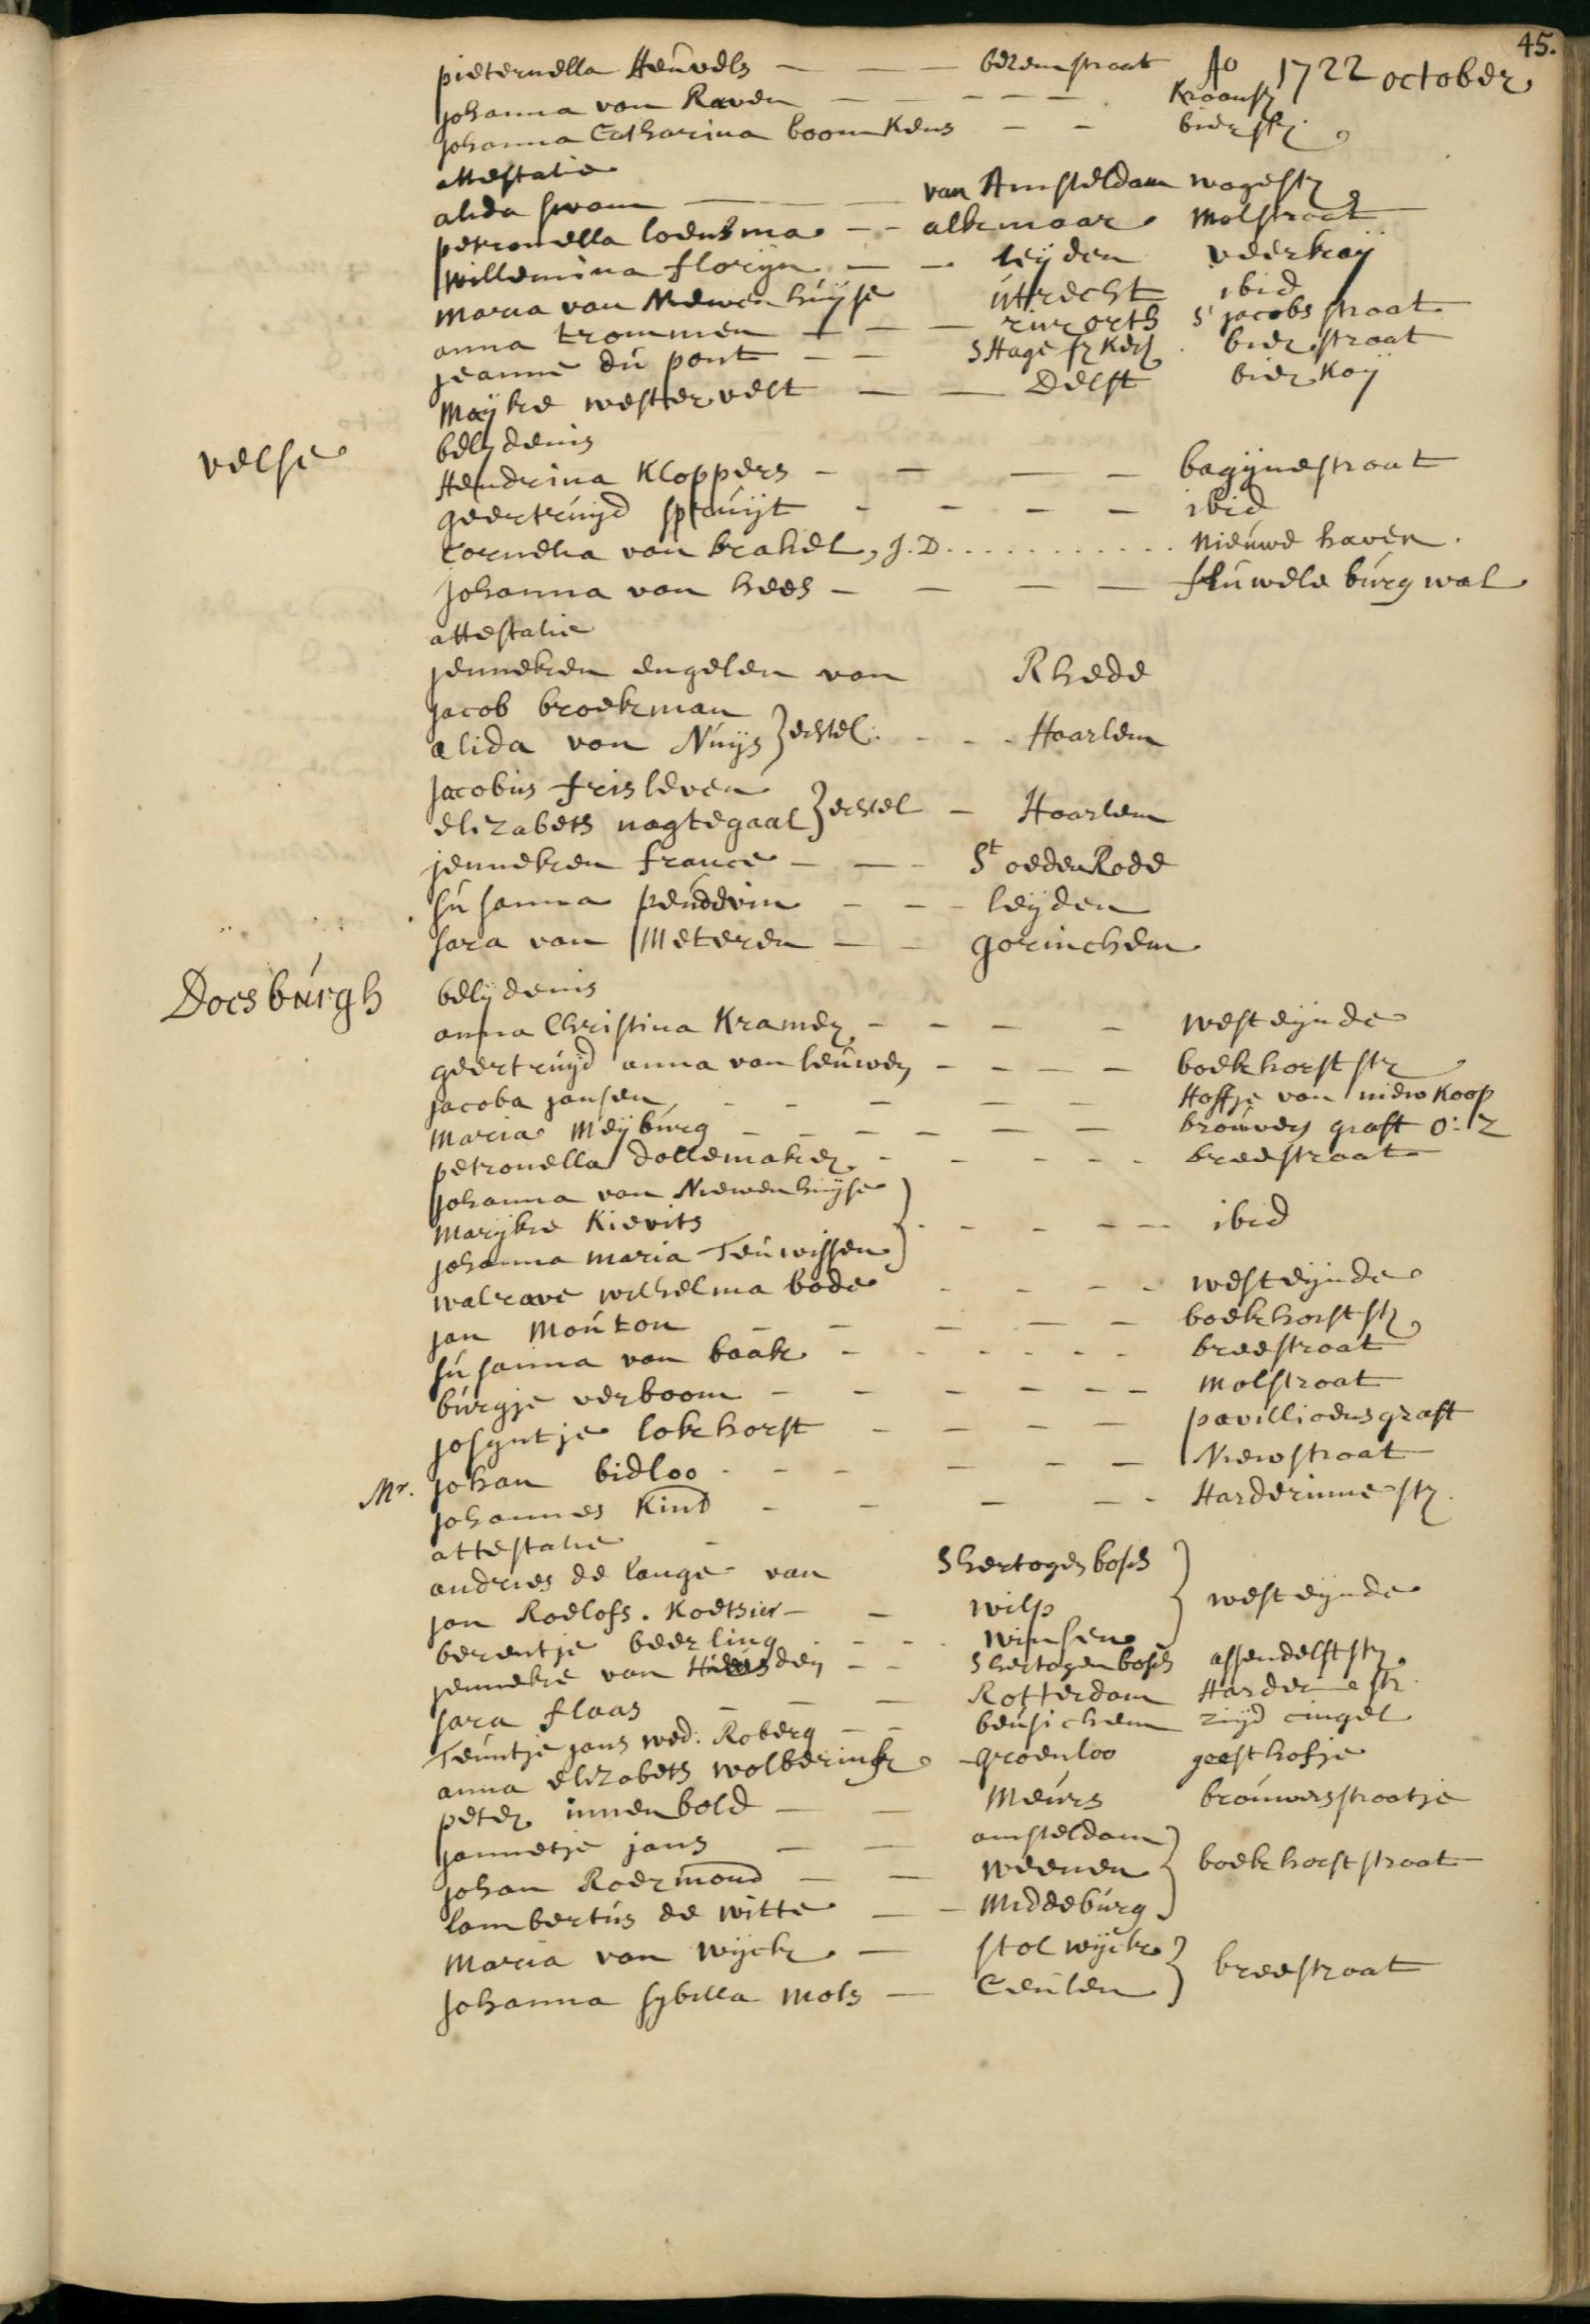 45.
Ao 1722 october
pieternella Heúvels — — — bezemstraat
johanna van Raven — — — — — Kraanstr
johanna Catharina boomkens — — bierstr.
attestatie
alida swam — — — van Amsteldam wagestr
petronella loensma — - alkmaar Molstraat
willemina florijn — — leijden veerkaij
maria van Niewenhúijse útrecht ibid
anna trommen — — — rinrorth St jacobs straat
jeanne dú pont — — SHage fr Kerk bierstraat
Maijke westervelt — — Delft bierkaij
velse
belijdenis
Hendrina Kloppers — — — — bagijnestraat
geertrúijd sprúijt - - — — ibid
Cornelia van brakel, J.D. . . . . . . . . . . . nieúwe haven.
johanna van hees — — — — flúwele búrgwal
attestatie
jenneken engelen van Rhede
jacob broekman
alida van Núijs } echtel: - - - Haarlem
jacobús frisleven
elizabeth nagtegaal } echtel — Haarlem
jenneken france — — - St oedenRode
súsanna peúdevin — — - leijden
sara van Meteren — — gorinchem
Doesbúrgh
belijdenis
anna Christina Kramer — - — — westeijnde
geertrúijd anna van leúwen — - — — boekhorststr
jacoba jansen - - — — — Hoffje van niewkoop
maria Meijbúrg — — — — — — broúwers graft o: z
petronella dollemaker - - - - - breestraat
johanna van Niewenhúijse
marijke Kievits
johanna maria Teúwissen } - — - — — ibid
walrave wilhelma bode - - - - westeijnde
jan Moúton — — — — — boekhorststr
súsanna van baak — - - - - - breestraat
búrgje verboom — — — — — — molstraat
josyntje lokhorst — — — — pavillioensgraft
Mr. johan bidloo - - — — — — Niewstraat
johannes Kind - — — — - Harderinne str.
attestatie
andries de lange van Shertogenbosch
jan Roelofs. Koetsier — — wilp
berentje beerling - - - winsen } westeijnde
jenneke van Húesden — - Shertogenbosch assendelftstr.
sara flaas — — — Rotterdam Harderinne str.
Teúntje jans wed: Roberg — — beúsichem zúijd cingel
anna elizabeth wolberink — groenloo geesthofje
peter innenbold — — Meúrs broúwersstraatje
jannetje jans — — amsteldam
johan Roermond — — weenen
lambertús de witte — — Middebúrg } boekhorststraat
Maria van wijck — stolwijck
johanna sybilla mols — Ceúlen } breestraat